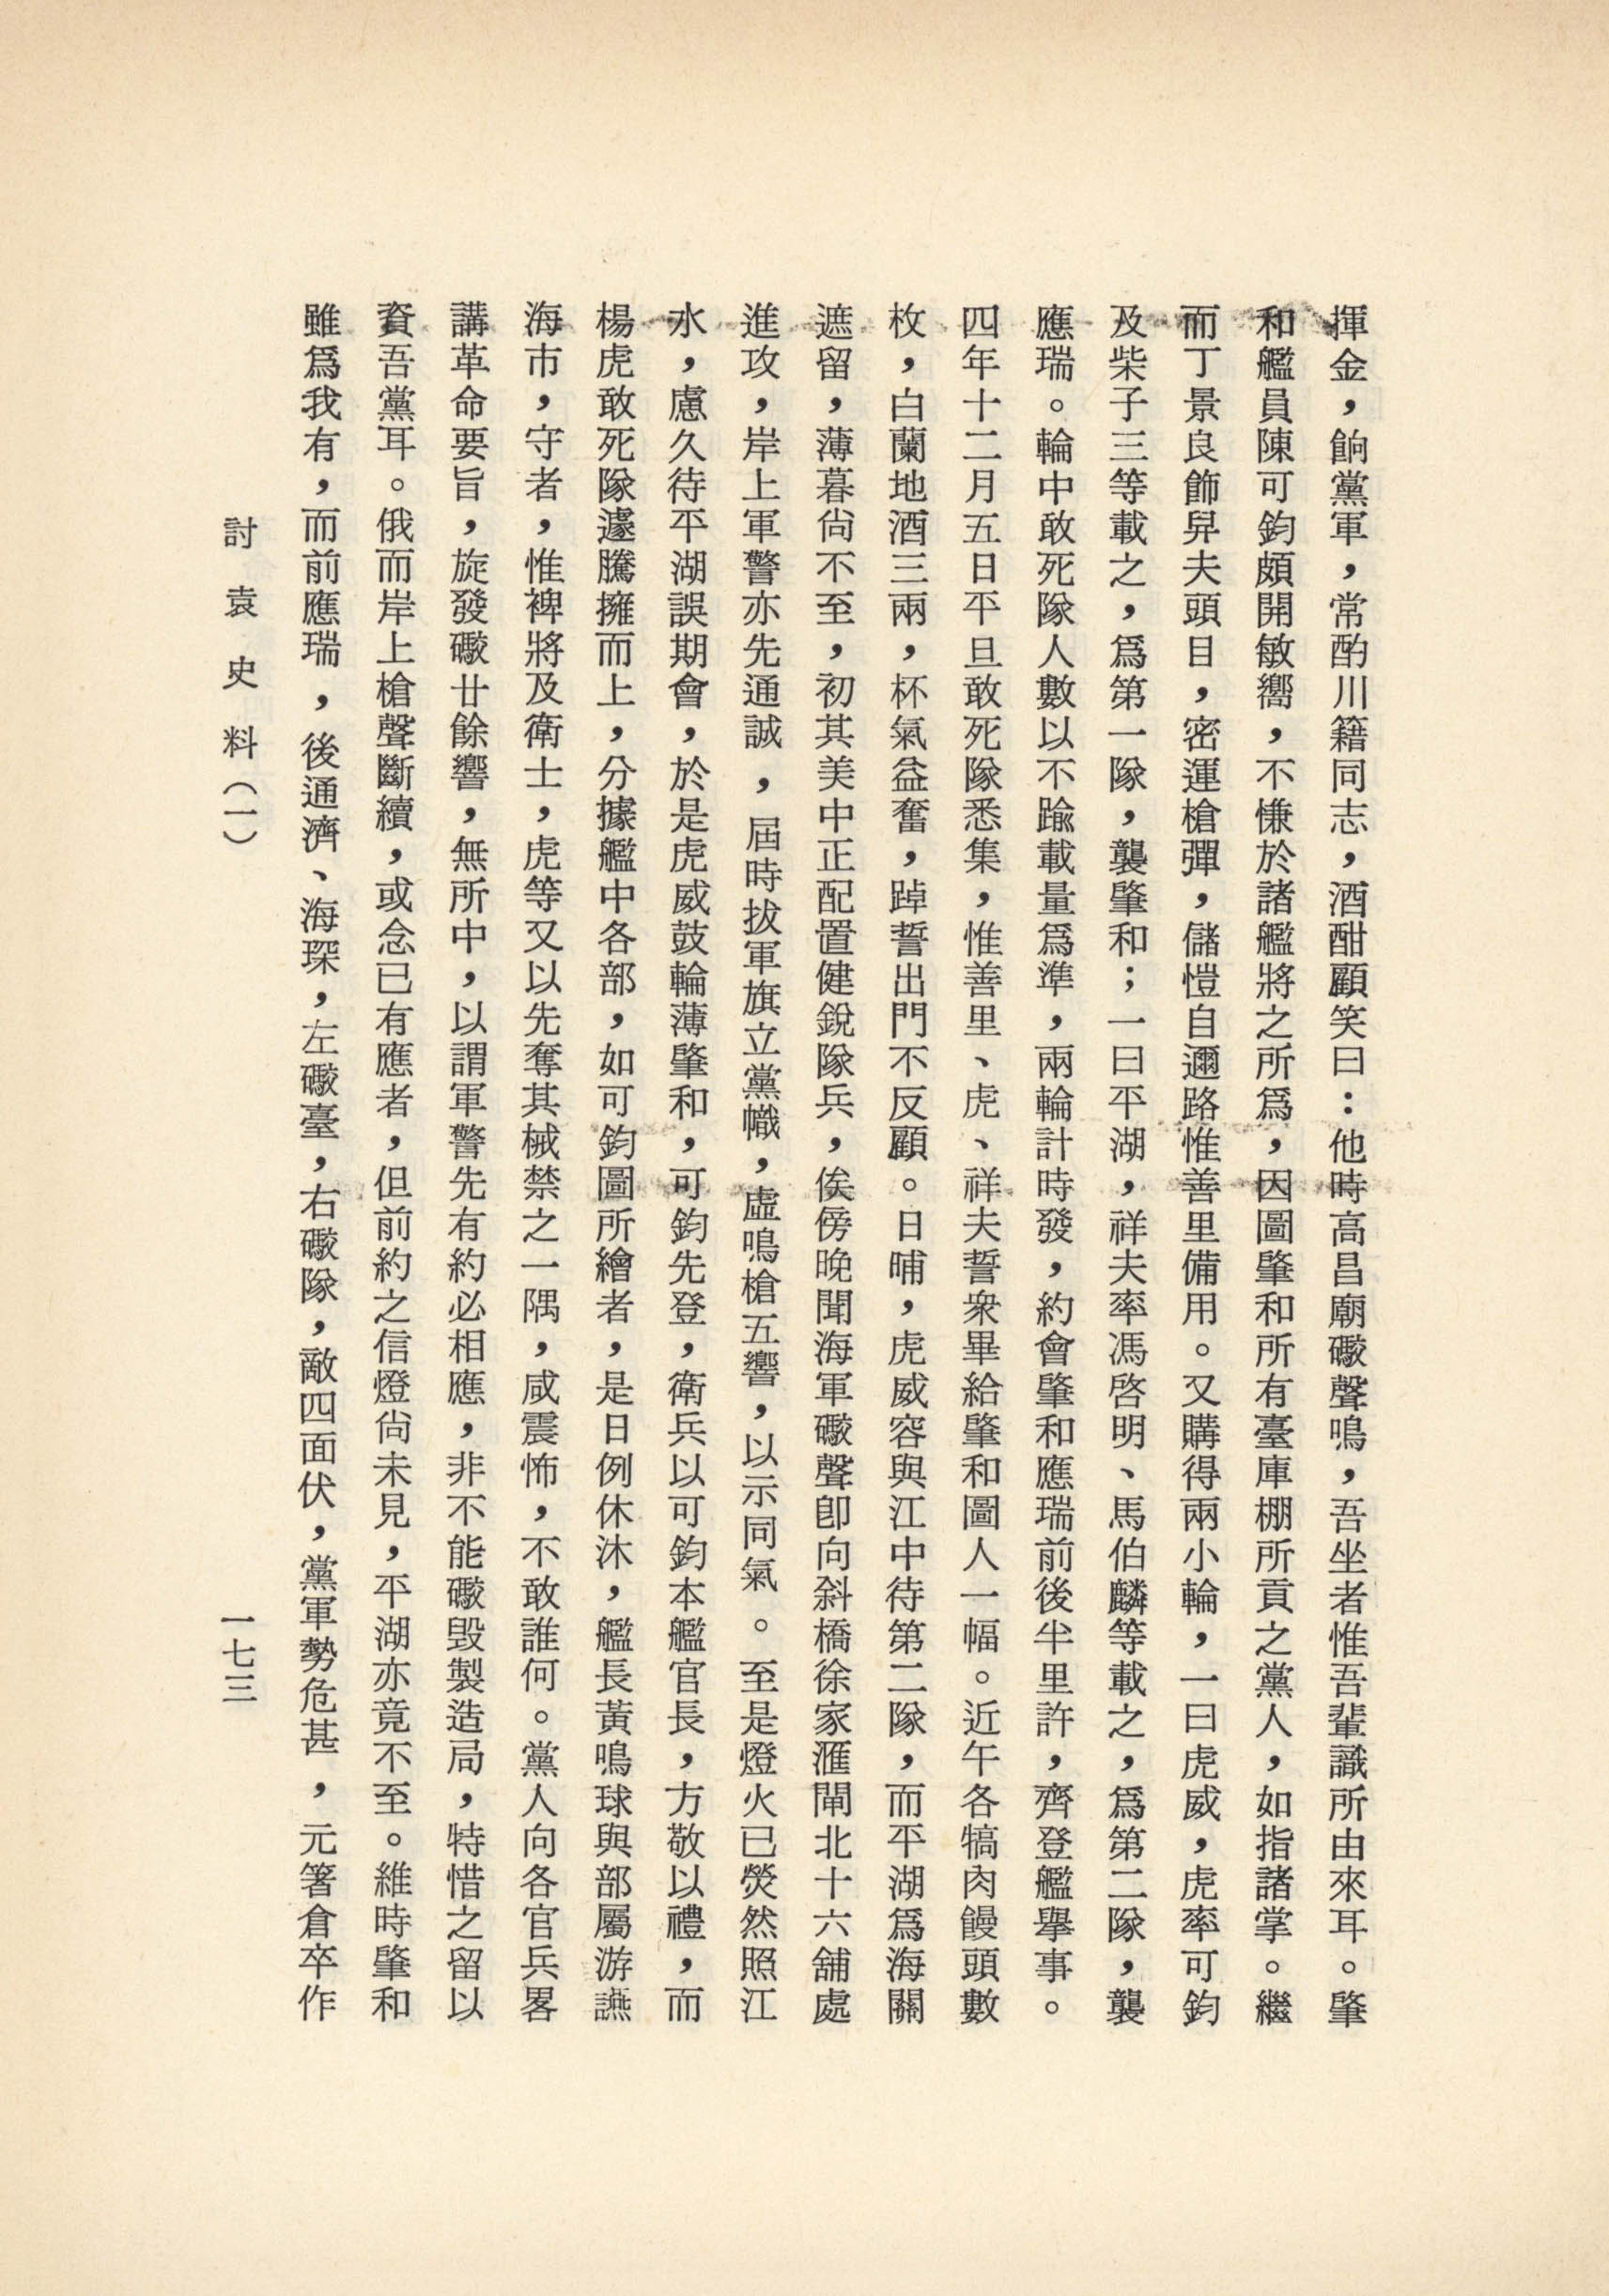 揮金，餉黨軍，常酌川籍同志，酒酣顧笑曰：他時高昌廟礮聲鳴，吾坐者惟吾輩識所由來耳。肇
和艦員陳可鈞頗開敏嚮，不慊於諸艦將之所爲，因圖肇和所有臺庫棚所貢之黨人，如指諸掌。繼
而丁景良飾舁夫頭目，密運槍彈，儲愷自邇路惟善里備用。又購得兩小輪，一曰虎威，虎率可鈞
及柴子三等載之，爲第一隊，襲肇和；一曰平湖，祥夫率馮啓明、馬伯麟等載之，爲第二隊，襲
應瑞。輪中敢死隊人數以不踰載量爲準，兩輪計時發，約會肇和應瑞前後半里許，齊登艦擧事。
四年十二月五日平旦敢死隊悉集，惟善里、虎、祥夫誓衆畢給肇和圖人一幅。近午各犒肉饅頭數
枚，白蘭地酒三兩，杯氣益奮，踔誓出門不反顧。日晡，虎威容與江中待第二隊，而平湖爲海關
遮留，薄暮尙不至，初其美中正配置健銳隊兵，俟傍晚聞海軍礮聲卽向斜橋徐家滙閘北十六舖處
進攻，岸上軍警亦先通誠，屆時拔軍旗立黨幟，虛鳴槍五響，以示同氣。至是燈火已熒然照江
水，慮久待平湖誤期會，於是虎威鼓輪薄肇和，可鈞先登，衛兵以可鈞本艦官長，方敬以禮，而
楊虎敢死隊遽騰擁而上，分據艦中各部，如可鈞圖所繪者，是日例休沐，艦長黃鳴球與部屬游讌
海市，守者，惟裨將及衛士，虎等又以先奪其械禁之一隅，咸震怖，不敢誰何。黨人向各官兵畧
講革命要旨，旋發礮廿餘響，無所中，以謂軍警先有約必相應，非不能礮毀製造局，特惜之留以
資吾黨耳。俄而岸上槍聲斷續，或念已有應者，但前約之信燈尙未見，平湖亦竟不至。維時肇和
雖爲我有，而前應瑞，後通濟、海琛，左礮臺，右礮隊，敵四面伏，黨軍勢危甚，元箸倉卒作
討袁史料（一）
一七三